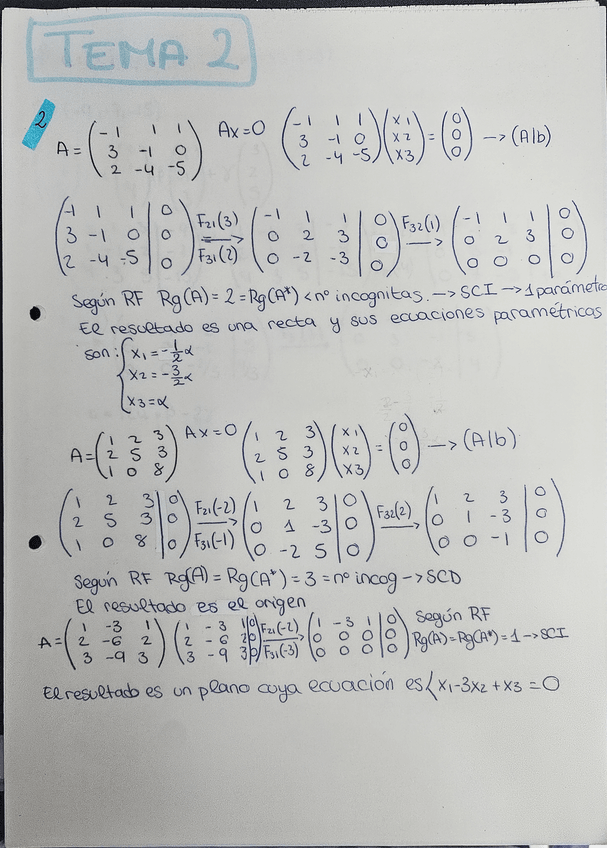 TEMA 2
2
A = (-1 1 1; 3 -1 0; 2 -4 -5) Ax=0 (-1 1 1; 3 -1 0; 2 -4 -5)(x1; x2; x3) = (0; 0; 0) → (A|b)
(-1 1 1 | 0; 3 -1 0 | 0; 2 -4 -5 | 0) F21(3) F31(2) → (-1 1 1 | 0; 0 2 3 | 0; 0 -2 -3 | 0) F32(1) → (-1 1 1 | 0; 0 2 3 | 0; 0 0 0 | 0)
Según RF Rg(A) = 2 = Rg(A*) < nº incognitas. → SCI → 1 parámetro
El resultado es una recta y sus ecuaciones paramétricas
son: { x1 = -1/2 α
x2 = -3/2 α
x3 = α
A = (1 2 3; 2 5 3; 1 0 8) Ax=0 (1 2 3; 2 5 3; 1 0 8)(x1; x2; x3) = (0; 0; 0) → (A|b)
(1 2 3 | 0; 2 5 3 | 0; 1 0 8 | 0) F21(-2) F31(-1) → (1 2 3 | 0; 0 1 -3 | 0; 0 -2 5 | 0) F32(2) → (1 2 3 | 0; 0 1 -3 | 0; 0 0 -1 | 0)
Según RF Rg(A) = Rg(A*) = 3 = nº incog → SCD
El resultado es el origen
A = (1 -3 1; 2 -6 2; 3 -9 3) (1 -3 1 | 0; 2 -6 2 | 0; 3 -9 3 | 0) F21(-2) F31(-3) → (1 -3 1 | 0; 0 0 0 | 0; 0 0 0 | 0) Según RF
Rg(A) = Rg(A*) = 1 → SCI
El resultado es un plano cuya ecuación es { x1 - 3x2 + x3 = 0